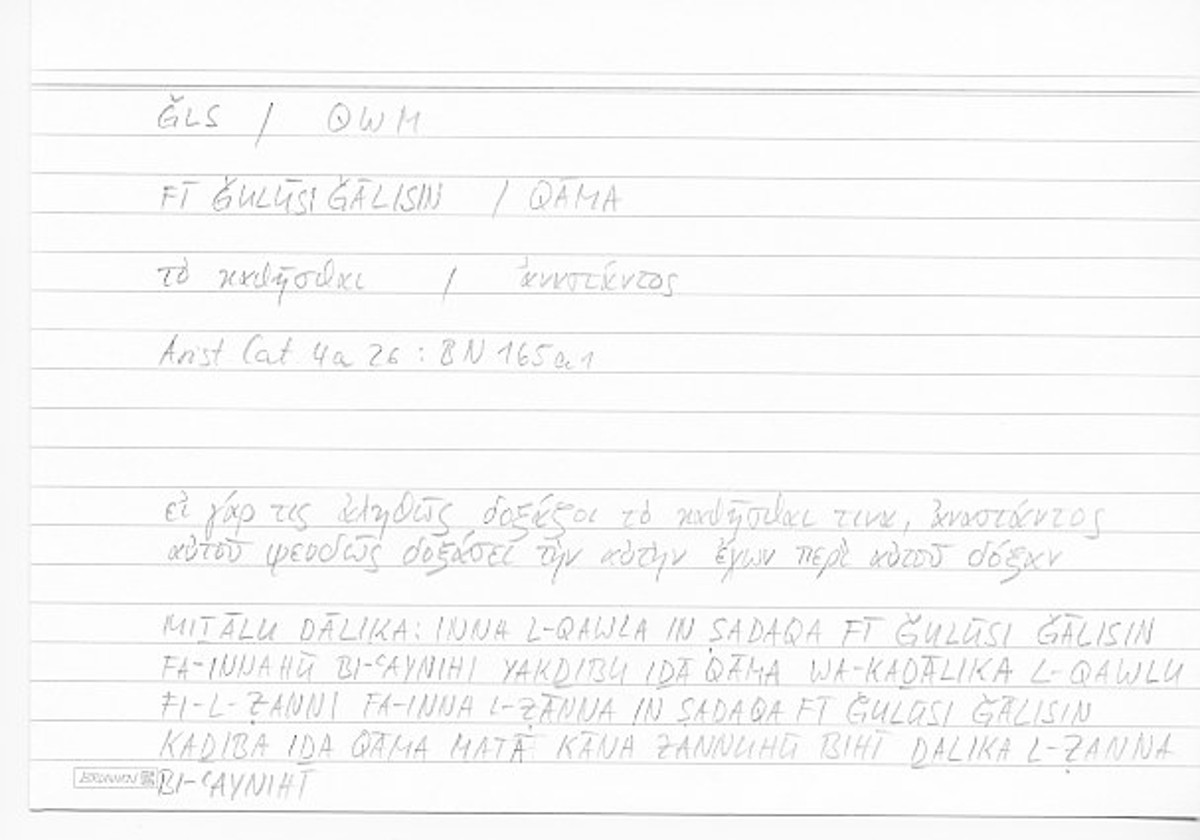 ǦLS / QWM
FĪ ǦULŪSI ǦĀLISIN / QĀMA
τὸ καθῆσθαι / ἀναστάντος
Arist Cat 4a 26 : BN 165a1
εἰ γάρ τις ἀληθῶς δοξάζοι τὸ καθῆσθαι τινα, ἀναστάντος
αὐτοῦ ψευδῶς δοξάσει τὴν αὐτὴν ἔχων περὶ αὐτοῦ δόξαν
MIṮĀLU ḎĀLIKA: INNA L-QAWLA IN ṢADAQA FĪ ǦULŪSI ǦĀLISIN
FA-INNAHŪ BI-ʿAYNIHI YAKḎIBU IḎĀ QĀMA WA-KAḎĀLIKA L-QAWLU
FI-L-ẒANNI FA-INNA L-ẒĀNNA IN ṢADAQA FĪ ǦULŪSI ǦĀLISIN
KAḎIBA IḎĀ QĀMA MATĀ KĀNA ẒANNUHŪ BIHĪ ḎALIKA L-ẒANNA
BRUNNEN BI-ʿAYNIHĪ